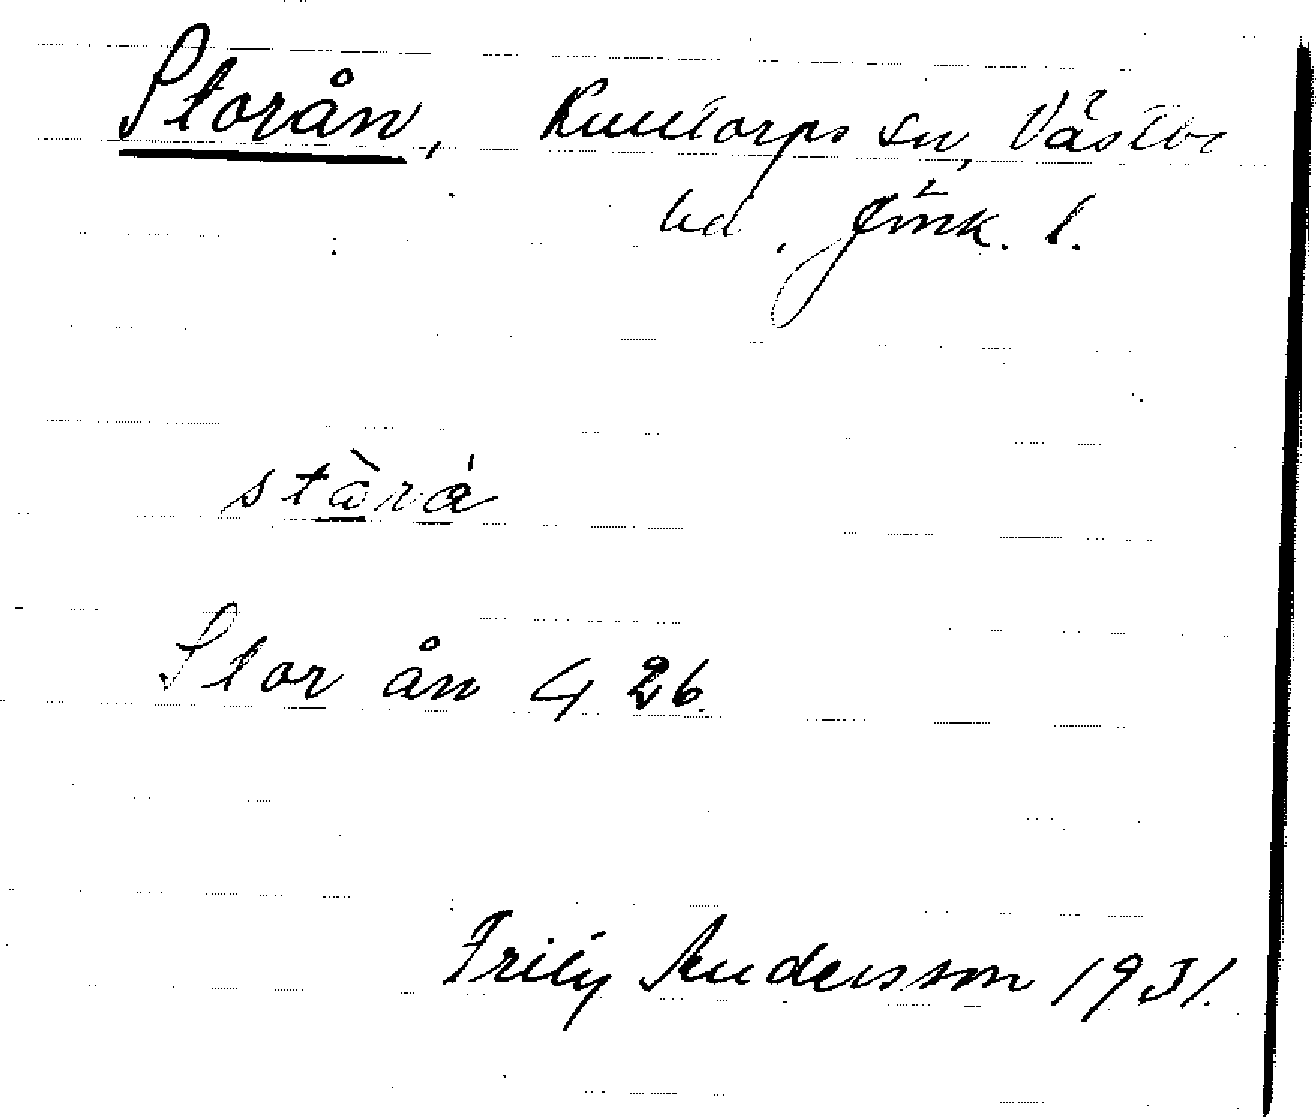 Storån, Kulltorps sn, Västbo
hd. Jönk. l.
stàrá
Stor ån G 26.
Frity Andersson 1931.